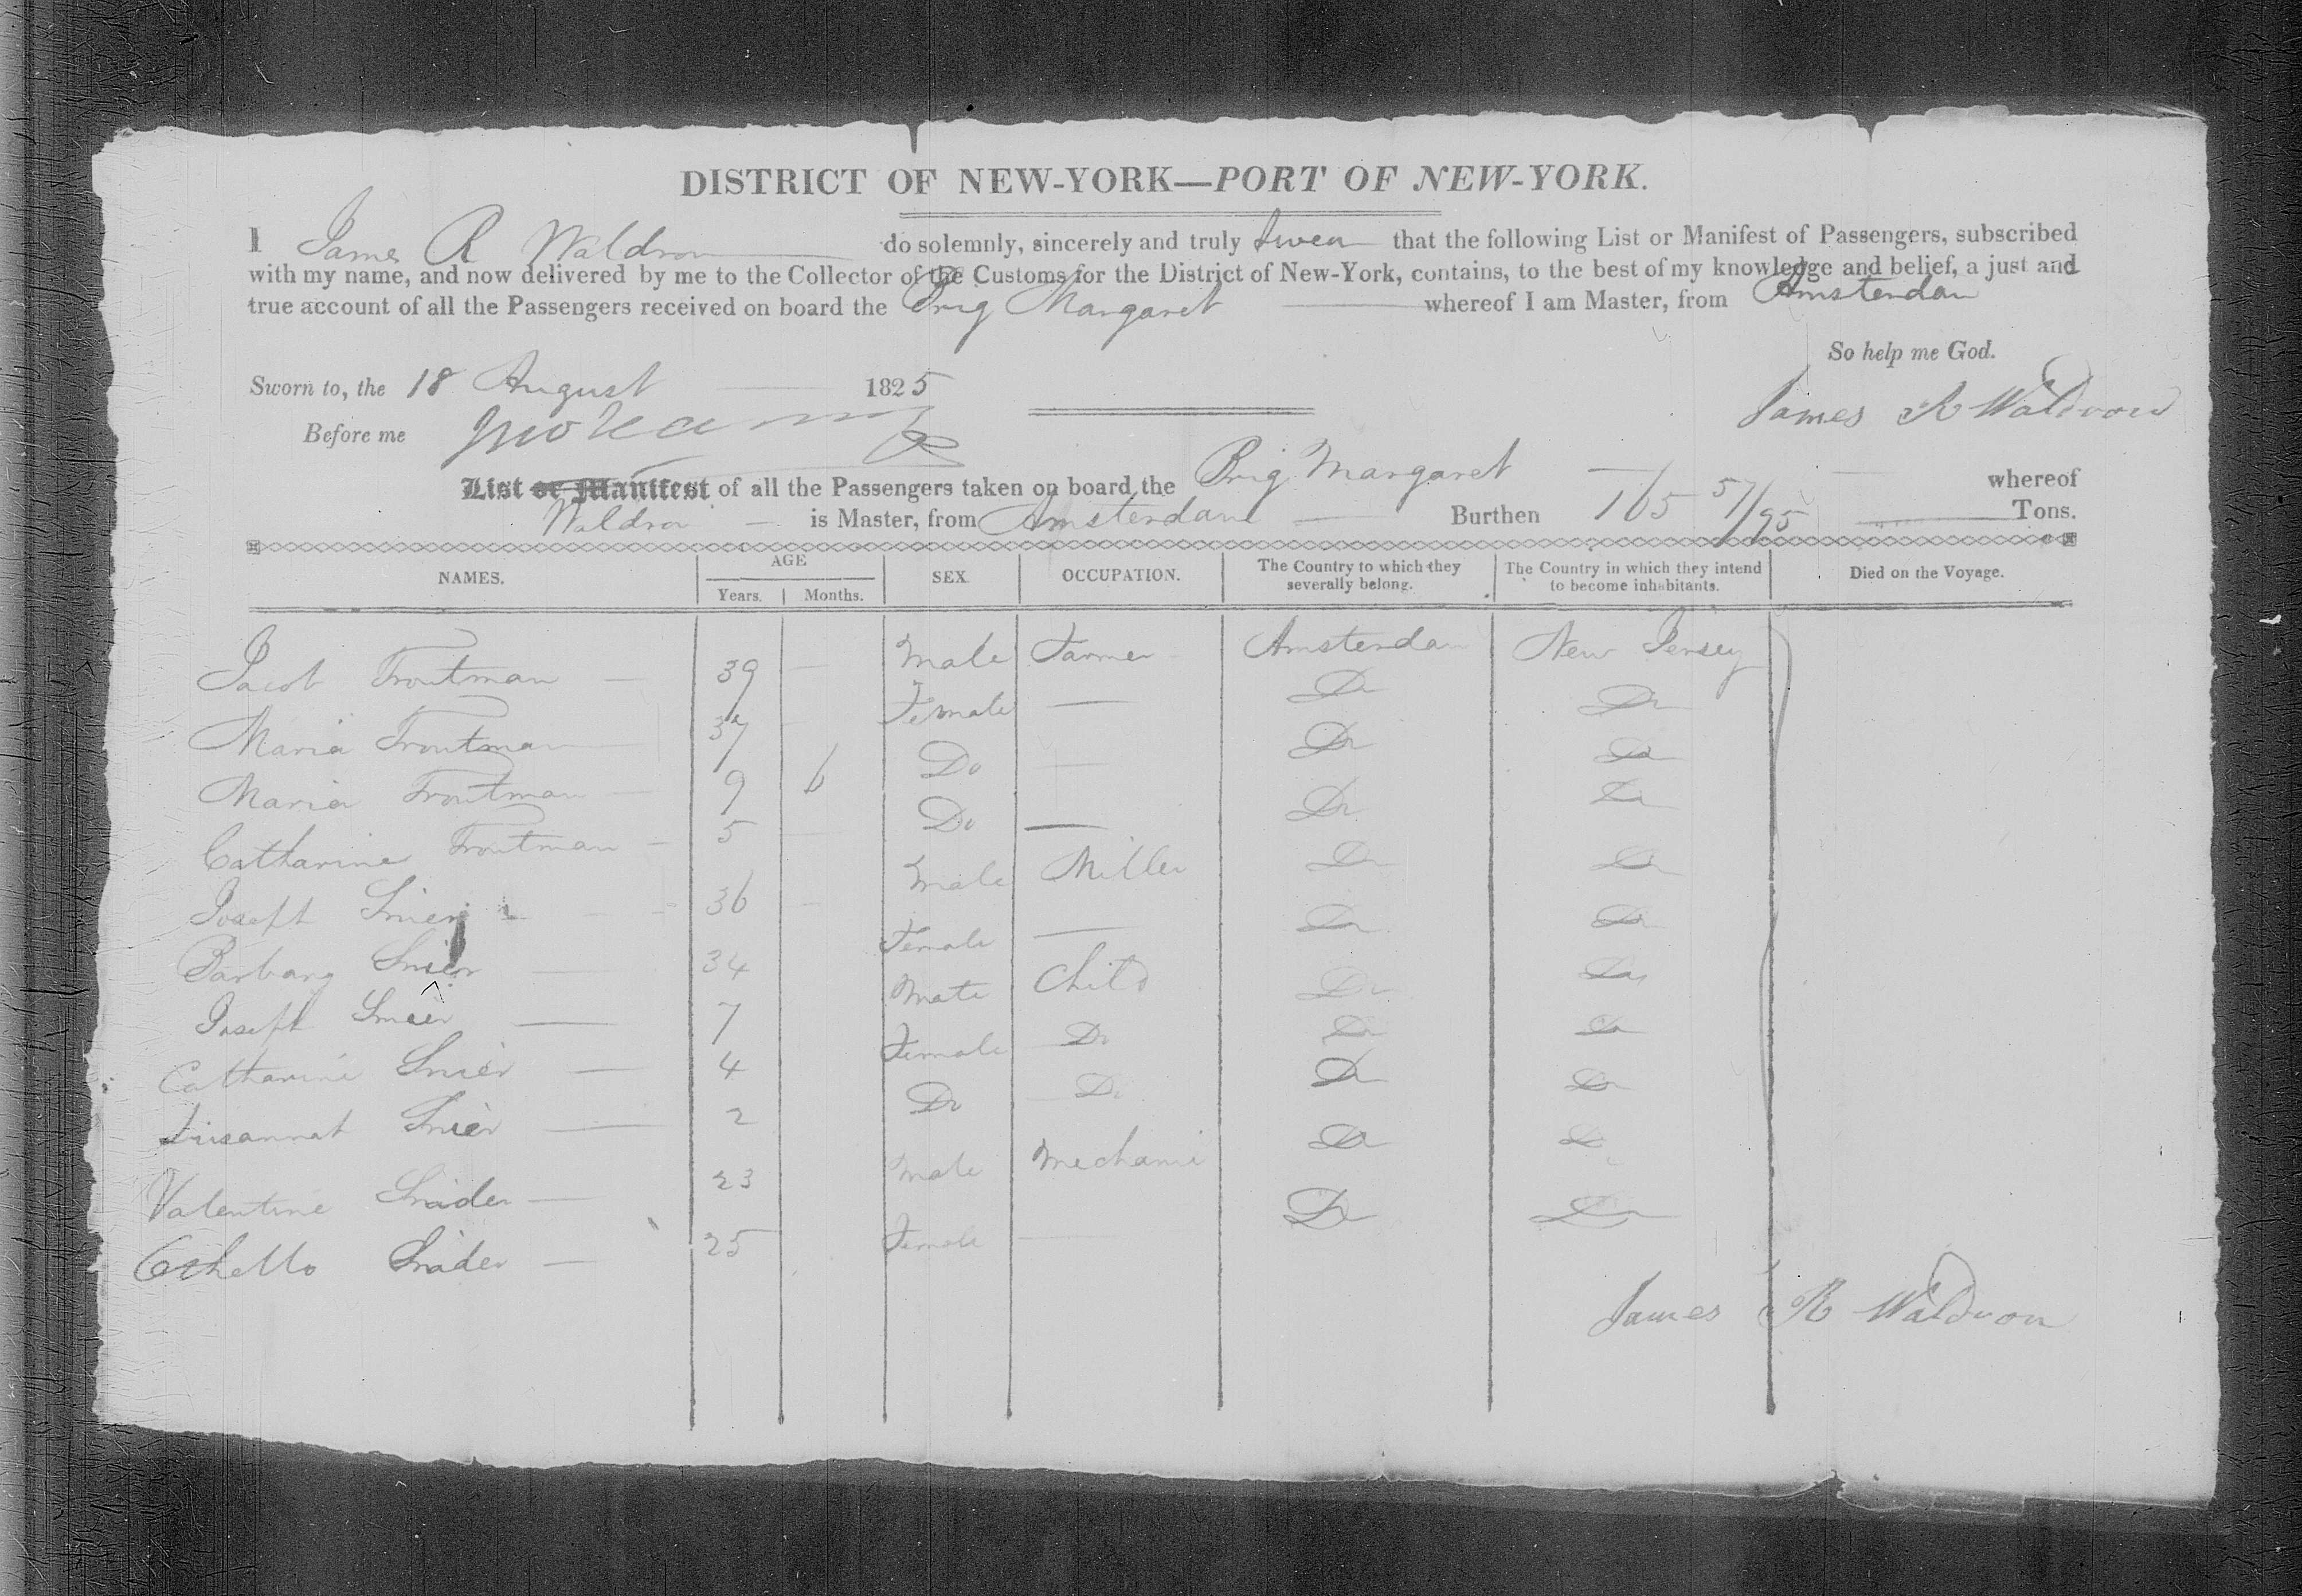 DISTRICT OF NEW-YORK—PORT OF NEW-YORK.
I James R Waldron do solemnly, sincerely and truly Swear that the following List or Manifest of Passengers, subscribed
with my name, and now delivered by me to the Collector of the Customs for the District of New-York, contains, to the best of my knowledge and belief, a just and
true account of all the Passengers received on board the Brig Margaret whereof I am Master, from Amsterdam
So help me God.
Sworn to, the 18 August 1825
James R Waldron
Before me
List or Manifest of all the Passengers taken on board the Brig Margaret whereof
Waldron is Master, from Amsterdam Burthen 165 57/95 Tons.
NAMES. AGE Years. Months. SEX. OCCUPATION. The Country to which they severally belong. The Country in which they intend to become inhabitants. Died on the Voyage.
Jacob Troutman — 39 — Male Farmer Amsterdam New Jersey
Maria Troutman 37 — Female — Do Do
Maria Troutman — 9 6 Do — Do Do
Catharine Troutman — 5 — Do — Do Do
Joseph 36 — Male Miller Do Do
Barbary Snier — 34 Female — Do Do
Joseph Snier — 7 Male Child Do Do
Catharine Snier — 4 Female Do Do Do
Snier — 2 Do Do Do Do
Valentine Snider — 23 Male Mechanic Do Do
Snider — 25 Female — Do Do
James R Waldron